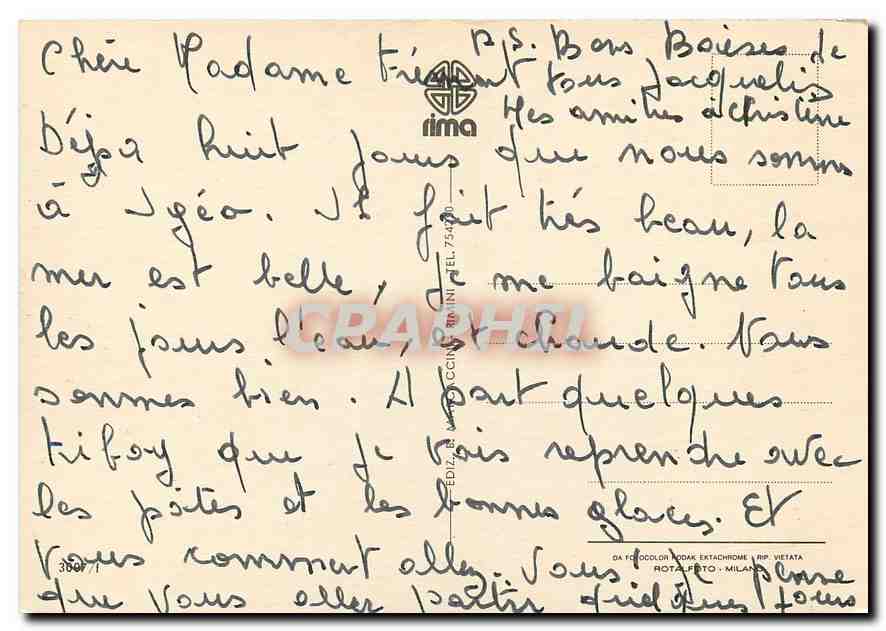 P.S. Bons Baises de
Chère Madame Trément tous Jacquelis
rima
Mes amities à Christine
Déja huit jours que nous somms
à Igéa. Il fait très beau, la
mer est belle, je me baigne tous
les jours l'eau, est chaude. Nous
sommes bien. A part quelques
que je vais reprendre avec
les pâtes et les bonnes glaces. Et
vous comment allez. Vous! Je pense
que vous aller partir quelques jours
3007/1
DA FOTOCOLOR KODAK EKTACHROME - RIP. VIETATA
ROTALFOTO - MILANO
RIMINI - TEL. 754
CPAPHIL